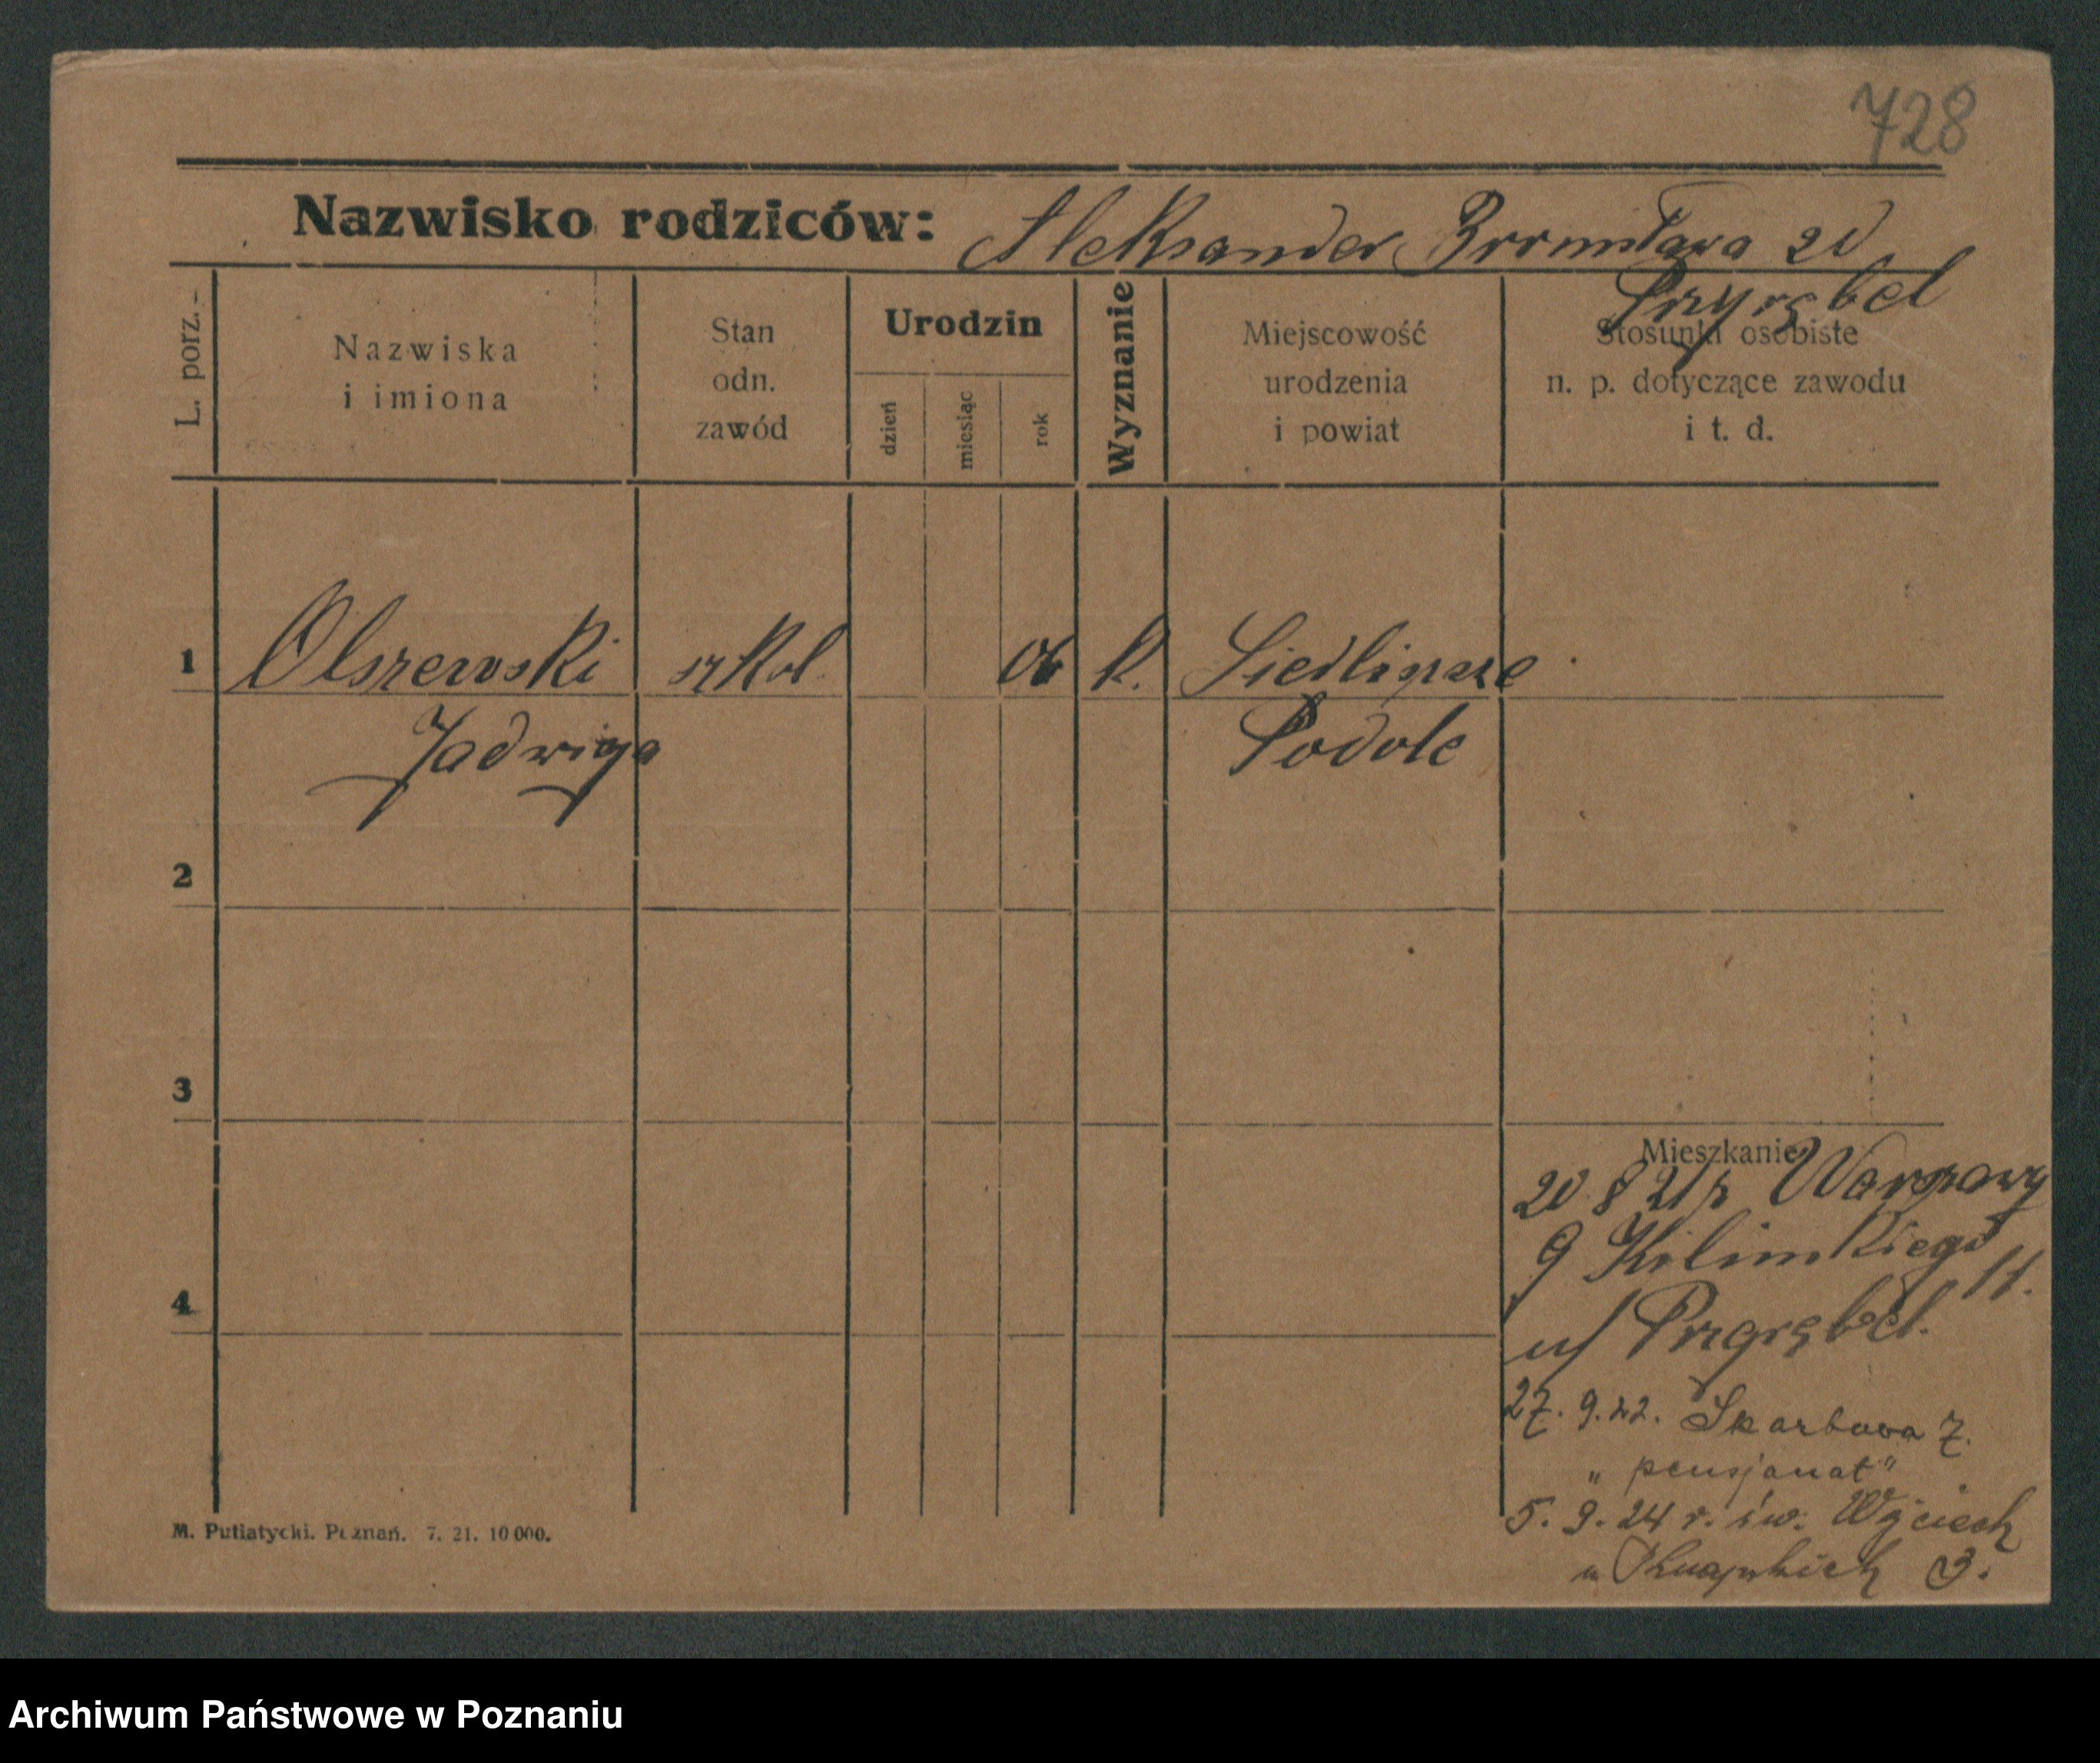 728
Nazwisko rodziców: Aleksander Bronisława zd
Przyrębel
L. porz.
Nazwiska
i imiona
Stan
odn.
zawód
Urodzin
dzień
miesiąc
rok
Wyznanie
Miejscowość
urodzenia
i powiat
Stosunki osobiste
n. p. dotyczące zawodu
i t. d.
1 Olszewski szkol. 06 k.
Jadwiga Podole
2
3
4
Mieszkanie
20 8 21 r z Warszawy
9 Kilinskiego 11.
u/ Przyrębel.
27. 9. 22. Skarbowa 7.
„ pensjonat"
5. 9. 24 r. św. Wojciech
u 3.
M. Putiatycki. Poznań. 7. 21. 10 000.
Archiwum Państwowe w Poznaniu